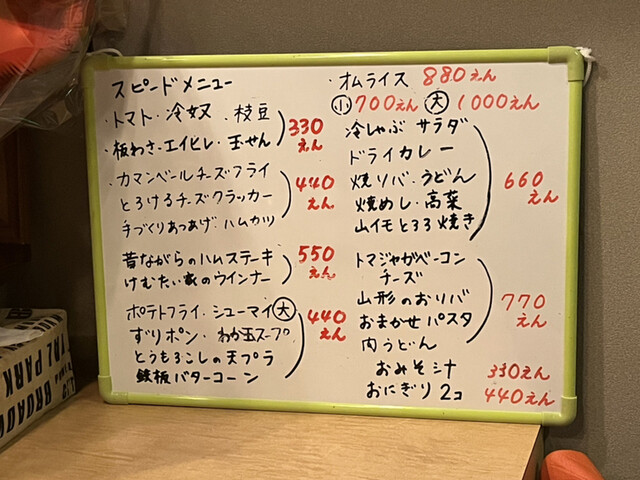 スピードメニュー
・トマト・冷奴・枝豆
・板わさ・エイヒレ・玉せん
330えん
・カマンベールチーズフライ
とろけるチーズクラッカー
手づくりあつあげ・ハムカツ
440えん
昔ながらのハムステーキ
けむたい家のウインナー
550えん
ポテトフライ・シューマイ大
ずりポン・わか玉スープ
とうもろこしの天プラ
鉄板バターコーン
440えん
・オムライス 880えん
小700えん 大1000えん
冷しゃぶ サラダ
ドライカレー
焼ソバ・うどん
焼めし・高菜
山イモとろろ焼き
660えん
トマジャガベーコン
チーズ
山形のおソバ
おまかせパスタ
肉うどん
770えん
おみそシナ 330えん
おにぎり2コ 440えん
BROADW
PARK